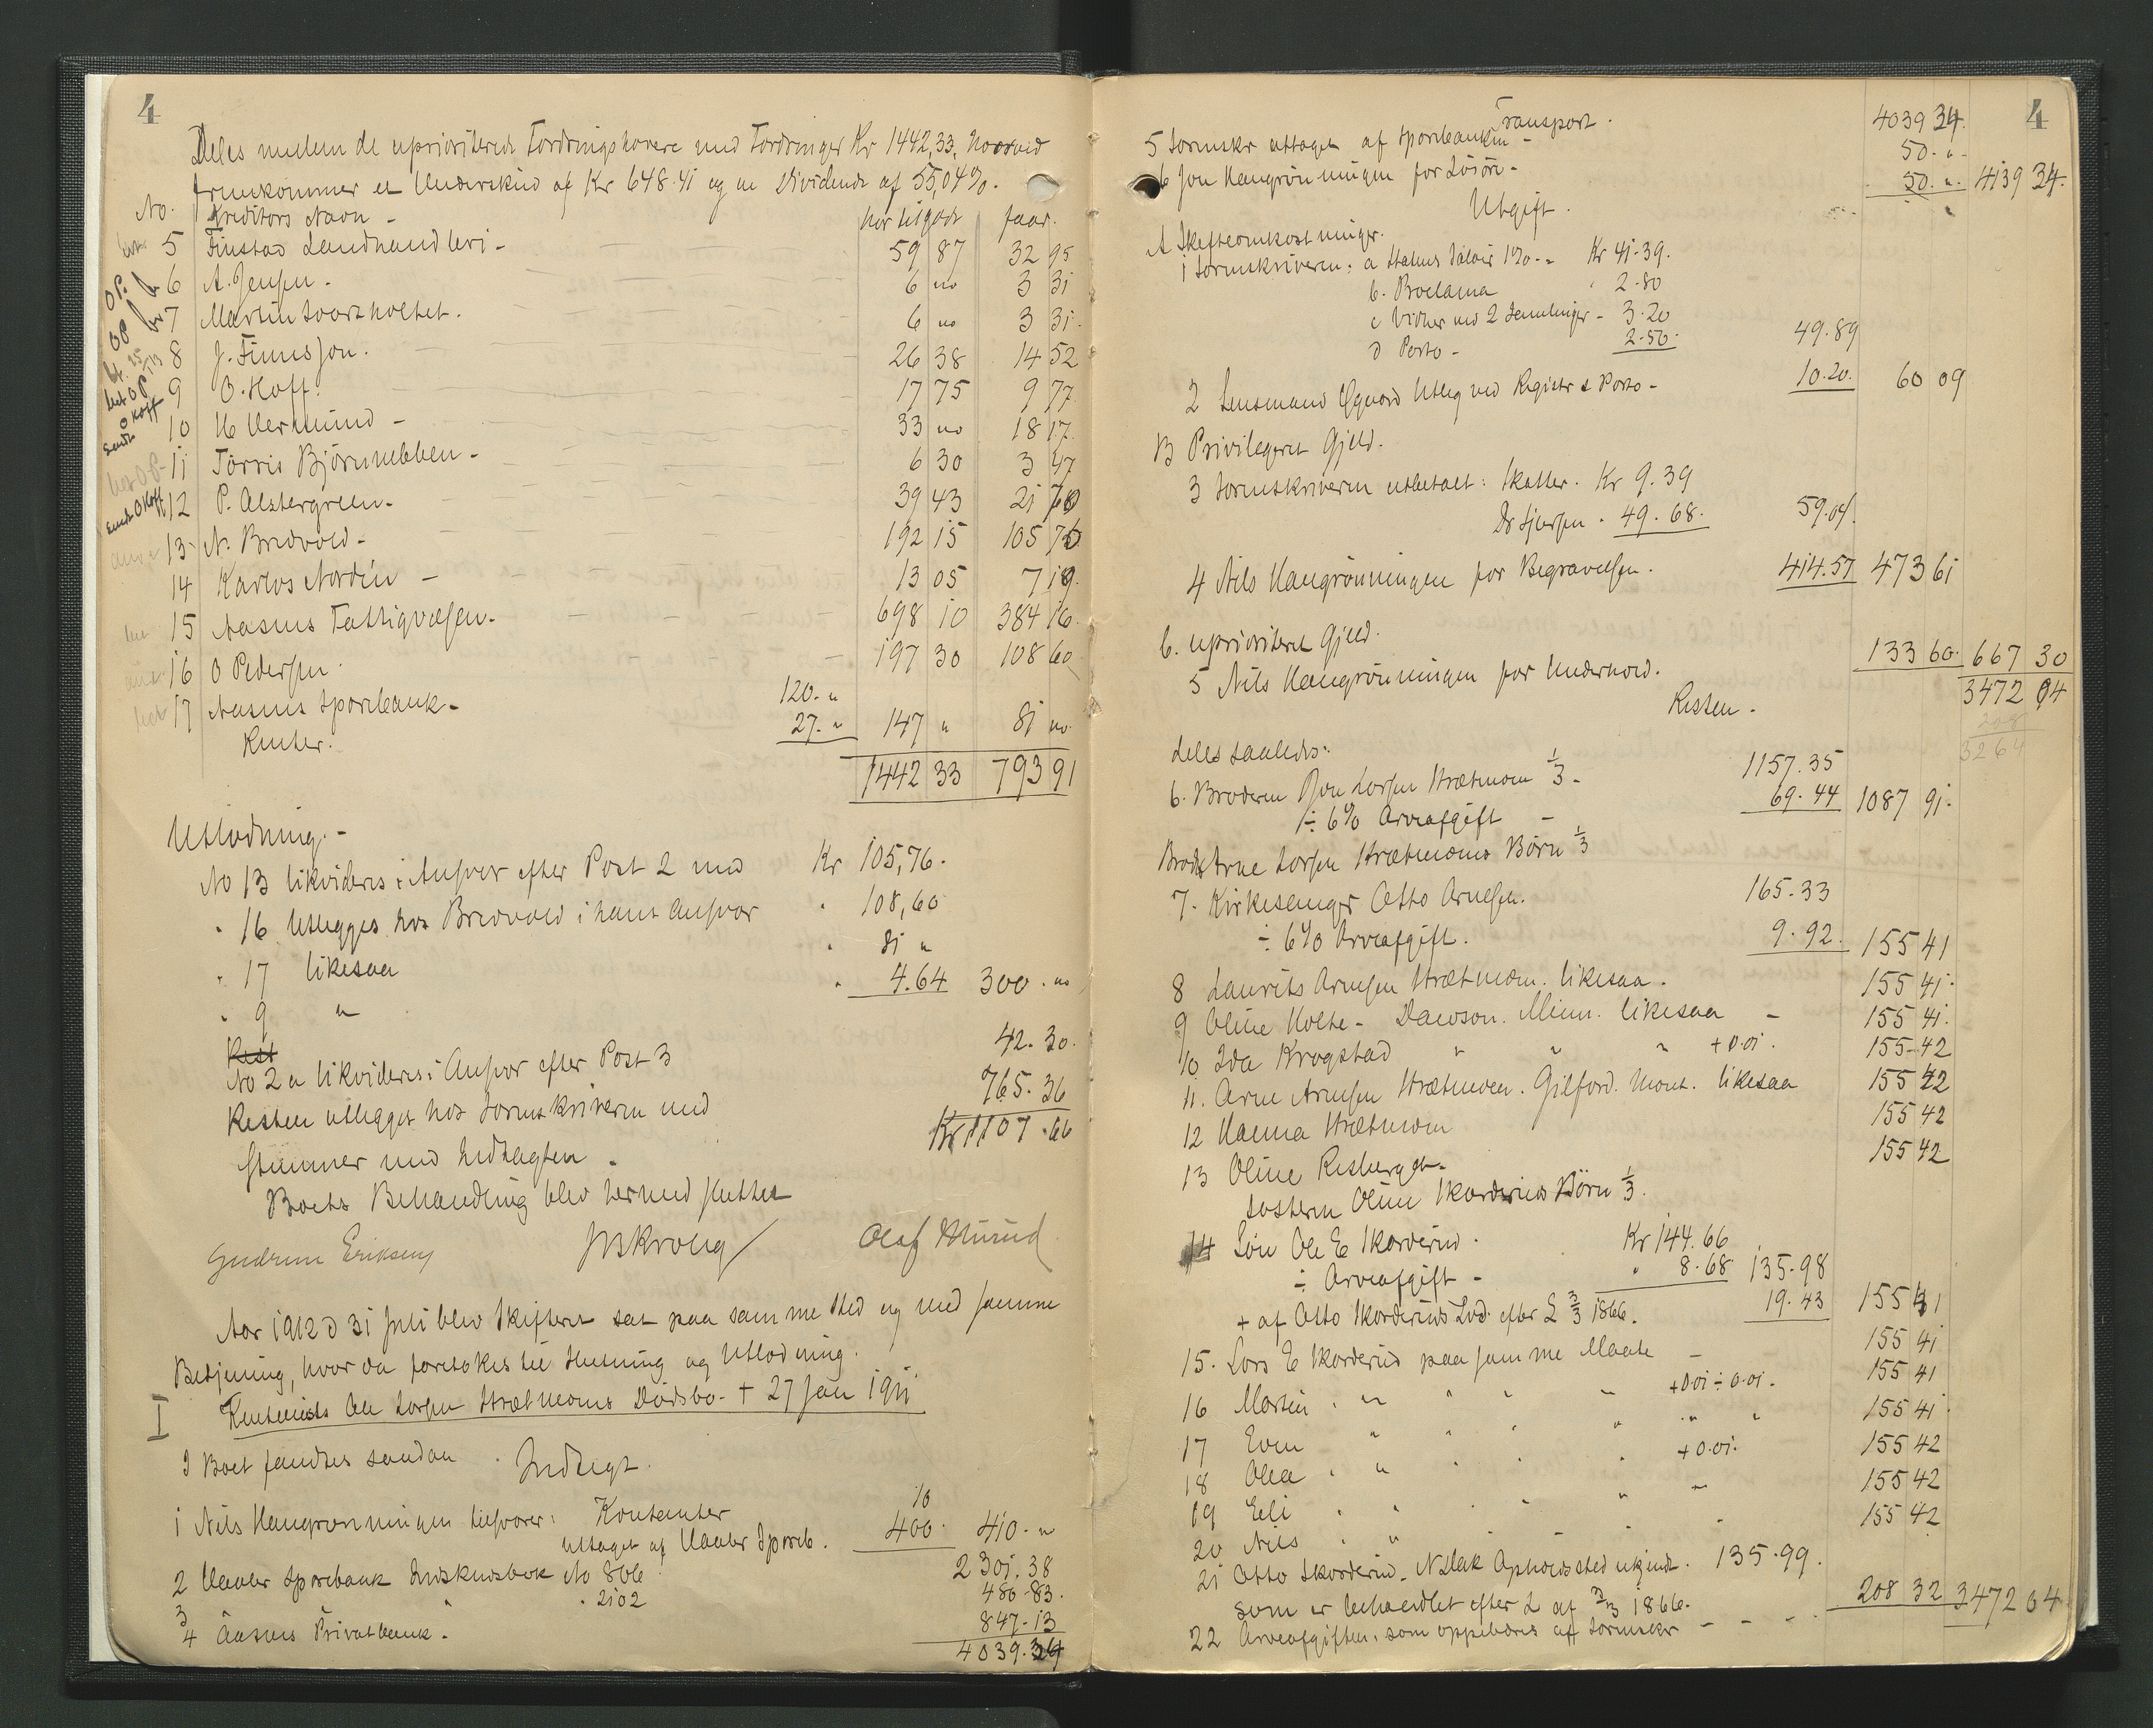 4
Deles mellem de uprioriterede Fordringshavere med Fordringer Kr 1442,33, hvorved
fremkommer et Underskud af Kr 648.41 og en Dividende af 55,04%.
No. Kreditors Navn - har tilgode faar.
5 Finstad Landhandleri - 59 87 32 95
6 A. Jensen - 6 no 3 31
7 Martin Svartholtet. 6 no 3 31.
8 J. Finnsson. 26 38 14 52
9 O. Hoff. 17 75 9 77
10 33 no 18 17
11 Tørris Björnnebben - 6 30 3 47
12 P. Alstergreen - 39 43 21 70
13 N. Bredvold - 192 15 105 76
14 Karlos Nordin - 13 05 7 19
15 Aasnes Fattigvæsen - 698 10 384 16
16 O Pedersen. 197 30 108 60
17 Aasnes Sparebank - 120. "
Renter. 27. " 147 " 81 no
1442 33 793 91
Utlodning. -
No 13 likvideres i Ansvar efter Post 2 med Kr 105,76.
" 16 Utlegges hos Bredvold i hans Ansvar " 108,60
" 17 likesaa " 81 "
" 9 " " 4.64 300. no
No 2 a likvideres i Ansvar efter Post 3 42.30.
Resten utlegges hos Sorenskriveren med 765.36
Stemmer med Indtægten. Kr 1107.66
Boets Behandling blev hermed sluttet
Gudrun Eriksen Olaf
Aar 1912 d 31 Juli blev Skifteret sat paa samme Sted og med samme
Betjening, hvor da foretokes til Slutning og Utlodning.
I Ole Larsen Strætmoens Dödsbo - + 27 Jan 1911
I Boet fandtes saadan Indtægt.
1 Nils Haugrønningen tilsvarer: Kontanter 10
uttaget af Vaaler Spareb. 400. 410. "
2 Vaaler Sparebank Indskudsbok No 806 2301.38
3 " " 2102 480.83.
4 Aasnes Privatbank. 847.13
4039.34
4
Transport. 4039 34.
5 Sorenskr uttaget af Sparebanken - 50. " -
6 Jon Haugrønningen for Løsøre - 50. ". 4139 34.
Utgift.
A Skifteomkostninger.
1 Sorenskriveren: a Statens Salær 1% - " Kr 41.39.
b. Proclama " 2.80
c Vidner ved 2 Samlinger - 3.20
d Porto - 2.50. 49.89
2 Lensmand Øgaard Utlæg ved Registr & Porto - 10.20. 60 09
B Privilegeret Gjeld.
3 Sorenskriveren utbetalt: Skatter. Kr 9.39
Dr 49.68. 59.07.
4 Nils Haugrønningen for Begravelsen. 414.57 473 61
C. uprioriteret Gjeld.
5 Nils Haugrønningen for Underhold. 133 60. 667 30
Resten. 3472 04
208
3264
deles saaledes:
6. Broderen Jon Larsen Strætmoen 1/3 - 1157.35
÷ 6% Arveafgift - 69.44 1087 91.
Arne Larsen Strætmoens Börn 1/3
7. Kirkesanger Otto Arnesen. 165.33
÷ 6% Arveafgift. 9.92. 155 41
8 Laurits Arnesen Strætmoen. likesaa. 155 41.
9 Oline Holte - Dawson. Minn. likesaa - 155 41.
10 Ida Krogstad " " " + 0.01. 155.42
11. Arne Arnesen Strætmoen. Gilford. Mont. likesaa 155 42
12 Hanna Strætmoen 155 42
13 Oline Risberget. 155 42
Søsteren Oline Skarderuds Börn 1/3.
14 Søn Ole E Skarderud. Kr 144.66
÷ Arveafgift - " 8.68 135.98
+ af Otto Skarderuds Lod efter L 3/3 1866. 19.43 155 41
15. Lars E Skarderud paa samme Maate - 155 41
16 Martin " " " " + 0.01 ÷ 0.01. 155 41
17 Even " " " " " 155 41.
18 Olea " " " " + 0.01. 155 42
19 Eli " " " " " 155 42
20 Nils " " " " 155 42
21 Otto Skarderud - N Dak Opholdssted ukjendt. 135.99.
som er behandlet efter L af 3/3 1866.
22 Arveafgiften, som oppebæres af Sorenskr - - - 208 32 3472 04